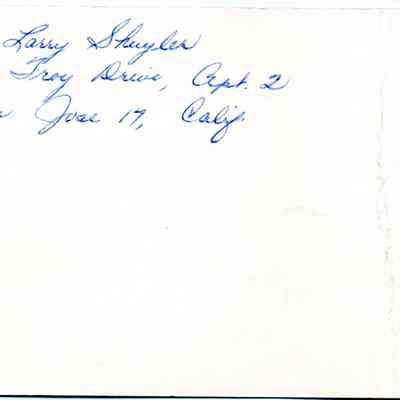 Larry Skuyler
Troy Drive, Apt. 2
Jose 17, Calif.